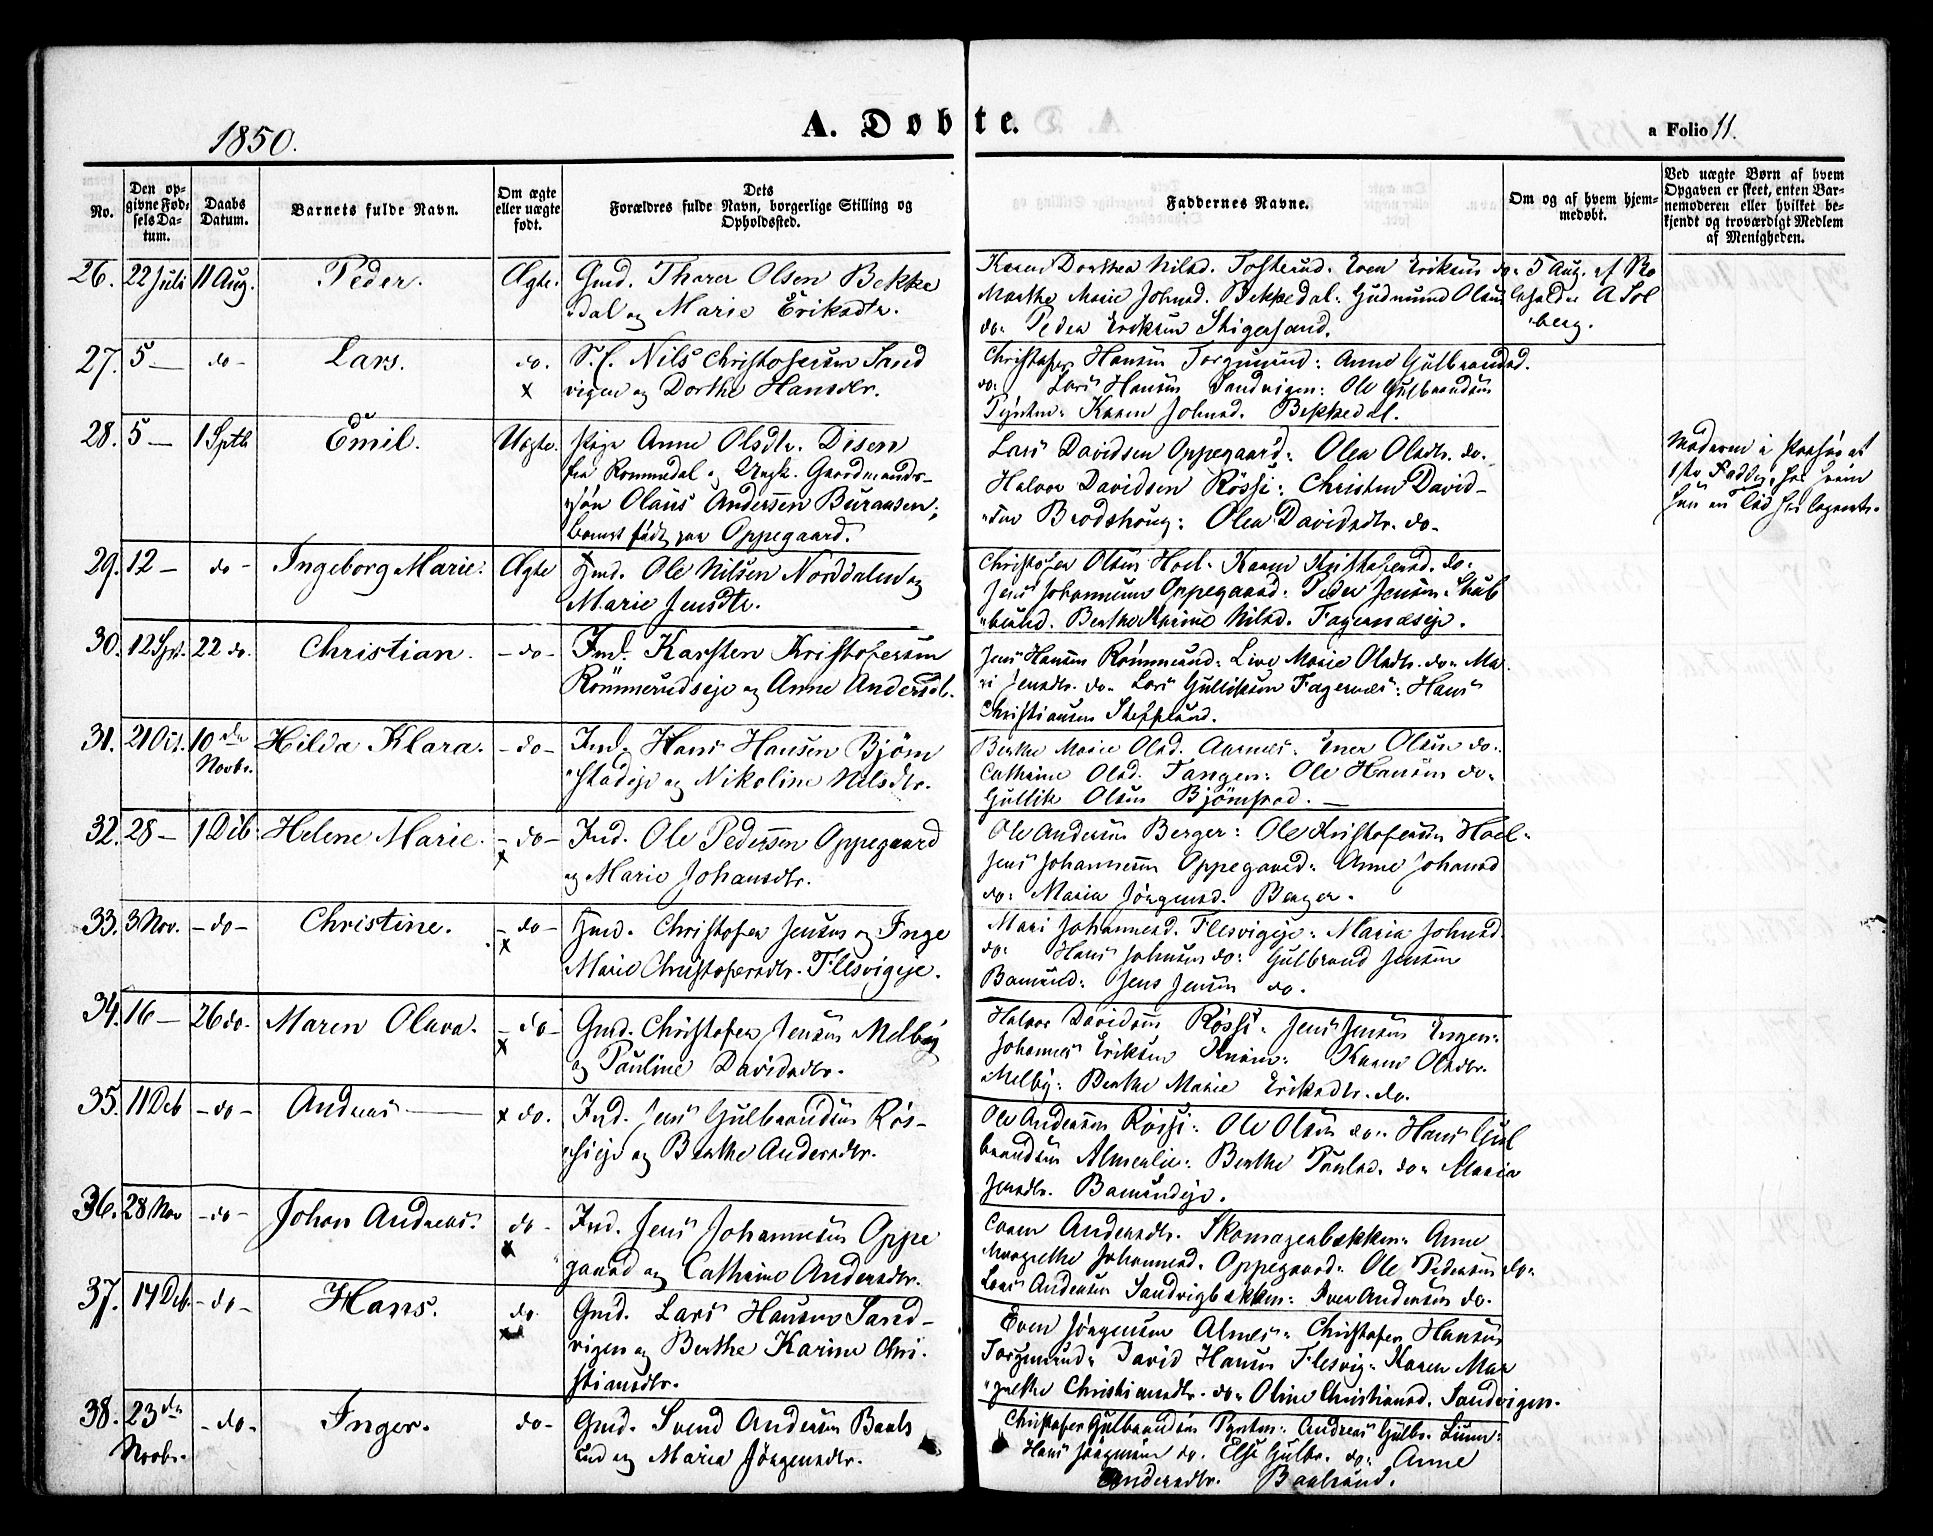 1850.
A. Døbte.
a Folio 11.
No.
Den op-
givne Fød-
sels Da-
tum.
Daabs
Datum.
Barnets fulde Navn.
Om ægte
eller uægte
født.
Dets
Forældres fulde Navn, borgerlige Stilling og
Opholdssted.
Faddernes Navne.
Om og af hvem hjem-
medøbt.
Ved uægte Børn af hvem
Opgaven er skeet, enten Bar-
nemoderen eller hvilket be-
kjendt og troværdigt Medlem
af Menigheden.
26. 22 Juli 11 Aug. Peder. Ægte.
Gmd. Thorer Olsen Bekke
dal og Marie Eriksdtr.
Karen Dorthea Nilsd. Tosterud. Even Eriksen do.
Marthe Marie Johnsd. Bekkedal. Gudmund Olsen
do. Peder Eriksen Stigersand.
5 Aug. af
A Sol
berg.
27. 5 — do - Lars. do. x
S.f. Nils Christofersen Sand
vigen og Dorthe Hansdtr.
Christofer Hansen Torgunrud. Anne Gulbrandsd.
do. Lars Hansen Sandvigen. Ole Gulbrandsen
Pynten. Karen Johnsd. Bekkedal.
28. 5 — 1 Sptb Emil. Uægte.
Pige Anne Olsdtr. Disen
fra Rommedal og Ungk. Gaardmands-
søn Olaus Anderssen Buraasen;
barnet født paa Oppegaard.
Lars Davidsen Oppegaard. Olea Olsdtr. do.
Halvor Davidsen Røssi. Christen David-
sen Brodshoug. Olea Davidsdtr. do.
Moderen i af
1ste Fadder, hos hvem
hun en Tid
29. 12 — do - Ingeborg Marie. Ægte
Hmd. Ole Nilsen Norddalen og
Marie Jensdtr.
Christofer Olsen Hoel. Karen Kristofersd. do.
Jens Johannesen Oppegaard. Peder Jensen Skab
berud. Berthe Karine Nilsd. Fagernæseje.
30. 12 Spt. 22 do. Christian. - do -
Ind. Karsten Kristofersen
Rømmerudseje og Anne Andersd.
Jens Hansen Rømmerud. Live Marie Olsdtr. do. Ma
ri Jensdtr. do. Lars Gulliksen Fagernæs. Hans
Christiansen Steffslund.
31. 21 Oct. 10 de Novbr. Hilda Klara. - do -
Ind. Hans Hansen Bjørn
stadeje og Nikoline Nilsdtr.
Berthe Marie Olsd. Aarnes. Ener Olsen do.
Cathrine Olsd. Tangen. Ole Hansen do.
Gullik Olsen Bjørnstad.
32. 28 — 1 Dcb. Helene Marie. - do - x
Ind. Ole Pederssen Oppegaard
og Marie Johansdtr.
Ole Andersen Berger. Ole Kristofersen Hoel.
Jens Johannesen Oppegaard. Anne Johansd
do. Maria Jørgensd. Berger.
33. 3 Nov. - do - Christine. - do - x
Hmd. Christofer Jensen og Inge
Marie Christofersdtr. Flesvigeje.
Mari Johannesd. Flesvigeje. Maria Johnsd.
do. Hans Johnsen do. Gulbrand Jensen
Bamrud. Jens Jensen do.
34. 16 — 26 do. Maren Olava. - do - x
Gmd. Christofer Jensen Melby
og Pauline Davidsdtr.
Halvor Davidsen Røssi. Jens Jensen Engen.
Johannes Eriksen. Karen Olsdtr.
Melby. Berthe Marie Eriksdtr. do.
35. 11 Dcb - do - Andreas x do.
Ind. Jens Gulbrandsen Røs-
sieje og Berthe Andersdtr.
Ole Andersen Røssi. Ole Olsen do. Hans Gul
brandsen Almerlie. Berthe Paulsd. do. Maria
Jensdtr. Bamrudeje.
36. 28 Nov - do - Johan Andreas. do - x
Ind. Jens Johannesen Oppe
gaard og Cathrine Andersdtr.
Caren Andersdtr. Skomagerbækken. Anne
Margrethe Johannesd. Oppegaard. Ole Pedersen do.
Lars Andersen Sandvigbækken. Iver Andersen do.
37. 14 Dcb. - do - Hans. do x
Gmd. Lars Hansen Sand-
vigen og Berthe Karine Chri-
stiansdtr.
Even Jørgensen Almes. Christofer Hansen
Torgunrud. David Hansen Flesvig. Karen Mar
grethe Christiansdtr. do. Oline Christiansd. Sandvigen.
38. 23 de Novbr. - do - Inger. do -
Gmd. Svend Andersen Baals
rud og Maria Jørgensdtr.
Christofer Gulbrandsen Pynten. Andreas Gulbr.
Hans Jørgensen do. Else Gulbr. do. Anne
Andersdtr. Baalsrud.